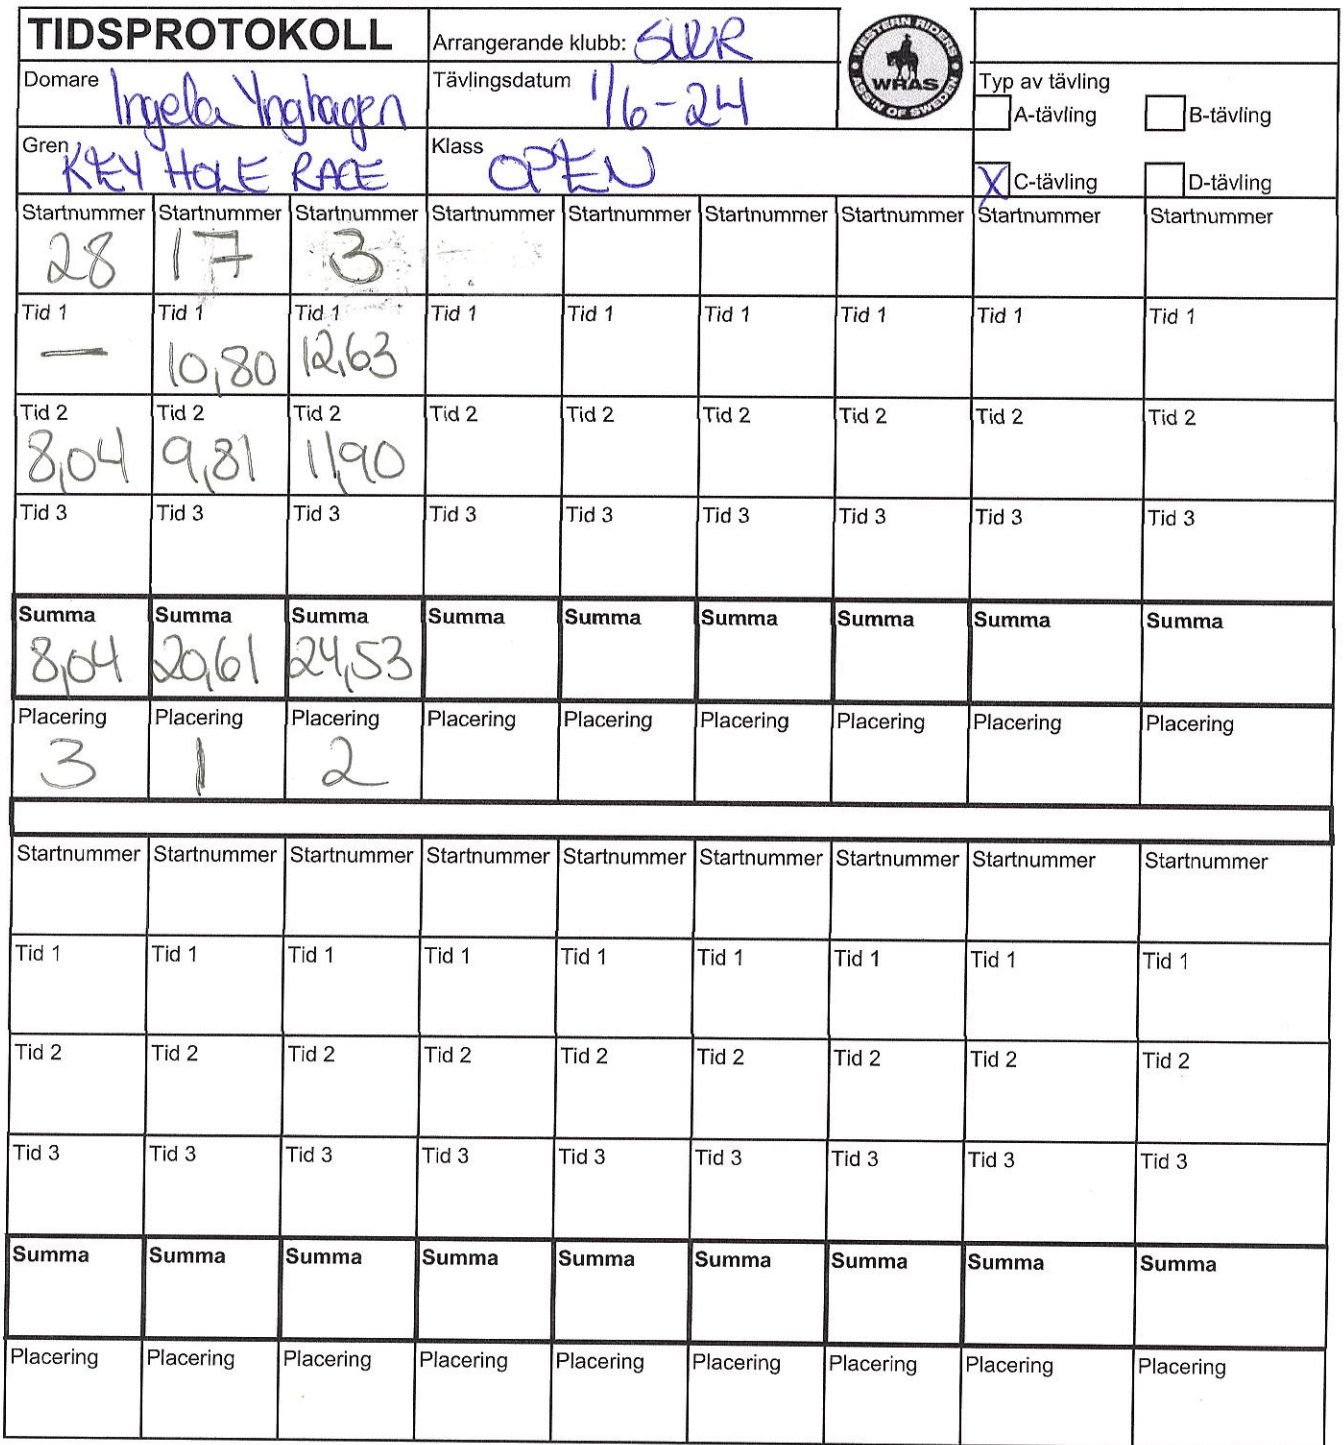 TIDSPROTOKOLL
Arrangerande klubb: SWR
WESTERN RIDERS ASS'N OF SWEDEN
WRAS
Domare Ingela Ynghagen
Tävlingsdatum 1/6-24
Typ av tävling
A-tävling B-tävling
Gren KEY HOLE RACE
Klass OPEN
X C-tävling D-tävling
Startnummer Startnummer Startnummer Startnummer Startnummer Startnummer Startnummer Startnummer Startnummer
28 17 3
Tid 1 Tid 1 Tid 1 Tid 1 Tid 1 Tid 1 Tid 1 Tid 1 Tid 1
— 10,80 12,63
Tid 2 Tid 2 Tid 2 Tid 2 Tid 2 Tid 2 Tid 2 Tid 2 Tid 2
8,04 9,81 11,90
Tid 3 Tid 3 Tid 3 Tid 3 Tid 3 Tid 3 Tid 3 Tid 3 Tid 3
Summa Summa Summa Summa Summa Summa Summa Summa Summa
8,04 20,61 24,53
Placering Placering Placering Placering Placering Placering Placering Placering Placering
3 1 2
Startnummer Startnummer Startnummer Startnummer Startnummer Startnummer Startnummer Startnummer Startnummer
Tid 1 Tid 1 Tid 1 Tid 1 Tid 1 Tid 1 Tid 1 Tid 1 Tid 1
Tid 2 Tid 2 Tid 2 Tid 2 Tid 2 Tid 2 Tid 2 Tid 2 Tid 2
Tid 3 Tid 3 Tid 3 Tid 3 Tid 3 Tid 3 Tid 3 Tid 3 Tid 3
Summa Summa Summa Summa Summa Summa Summa Summa Summa
Placering Placering Placering Placering Placering Placering Placering Placering Placering